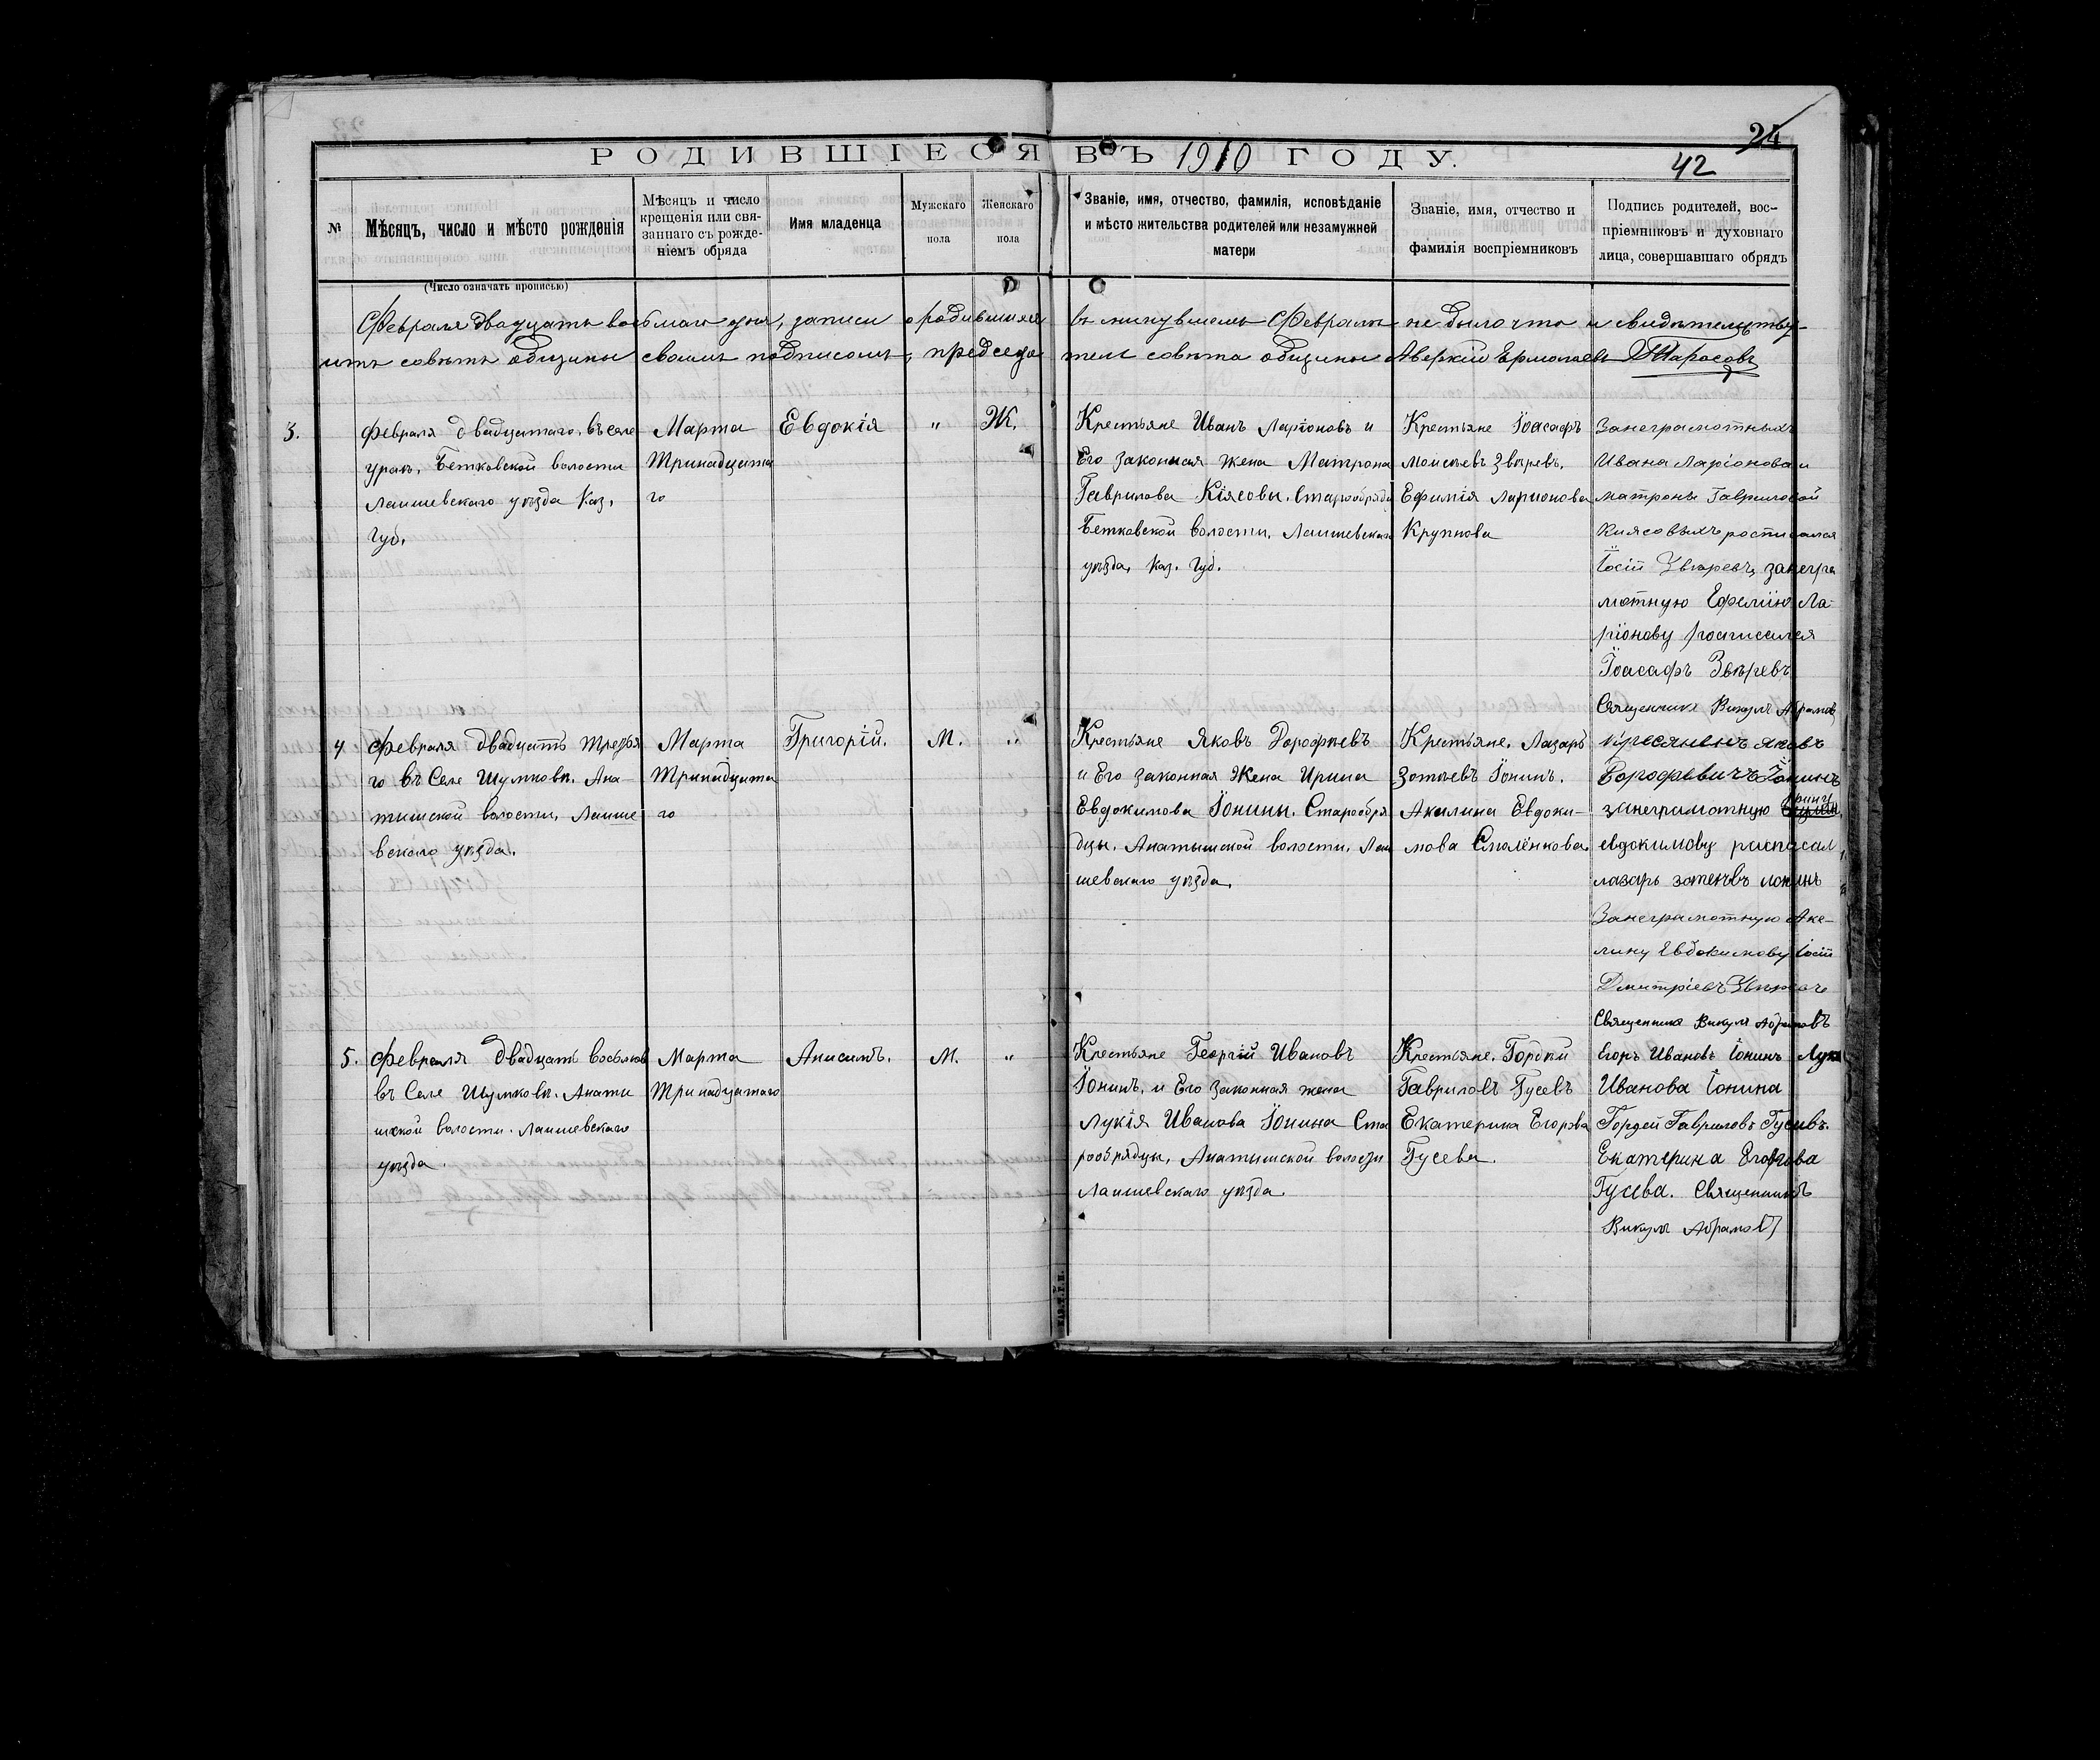 24
РОДИВШІЕСЯ ВЪ 1910 ГОДУ.
42
№
Мѣсяцъ, число и мѣсто рожденія
Мѣсяцъ и число
крещенія или свя-
заннаго съ рожде-
ніемъ обряда
Имя младенца
Мужскаго
пола
Женскаго
пола
Званіе, имя, отчество, фамилія, исповѣданіе
и мѣсто жительства родителей или незамужней
матери
Званіе, имя, отчество и
фамилія воспріемниковъ
Подпись родителей, вос-
пріемниковъ и духовнаго
лица, совершавшаго обрядъ
(Число означать прописью)
Февраля двадцать восьмаго дня, записи о родившихся въ минувшемъ Февралѣ не было что и свидѣтельству-
етъ совѣтъ общины своимъ подписомъ, председа тель совѣта общины Аверкій Ермолаевъ Тарасовъ
3.
Февраля двадцатаго. въ селе
урахъ, Бетковской волости
Лаишевскаго уѣзда Каз.
Губ.
Марта
Тринадцата
го
Евдокія
"
Ж.
Крестьяне Иванъ Ларіоновъ и
Его законная жена Матрона
Гаврилова Кіясовы. Старообряд
Бетковской волости. Лаишевскаго
уѣзда, Каз. Губ.
Крестьяне Іоасафъ
Моисѣевъ Звѣревъ.
Ефимія Ларионова
Крупнова
Занеграмотныхъ
Ивана Ларіонова и
матроны Гавриловой
Киясовыхъ росписался
Іосій Звѣревъ, занегра
мотную Ефемію Ла-
ріонову росписался
Іоасафъ Звѣревъ
Священникъ Викулъ Абрамов
4
Февраля двадцать третья
го въ Селе Шумковѣ. Ана-
тышской волости, Лаише
вскаго уѣзда.
Марта
Тринадцата
го
Григорій.
М.
"
Крестьяне Яковъ Дорофѣевъ
и Его законная Жена Ирина
Евдокимова Іонины. Старообря
дцы. Анатышской волости. Лаи
шевскаго уѣзда.
Крестьяне. Лазарь
Зотѣевъ Іонинъ.
Акилина Евдоки-
мова Смолёнкова.
Кресянинъ Яковъ
Дорофѣевичъ Іонинъ
занеграмотную Ирину
евдокимову росписал
лазарь зотеевъ ионинъ
Занеграмотную Аке-
лину Евдокимову Іосій
Дмитріевъ Звѣревъ
Священникъ Викулъ Абрамовъ
5.
Февраля двадцать восьмого
въ Селе Шумковѣ. Анаты
шской волости. Лаишевскаго
уѣзда.
Марта
Тринадцатаго
Анисимъ.
М.
"
Крестьяне Георгій Ивановъ
Іонинъ, и Его Законная жена
Лукія Иванова Іонина Ста
рообрядцы, Анатышской волости
Лаишевскаго уѣзда.
Крестьяне. Гордѣй
Гавриловъ Гусевъ
Екатерина Егорова
Гусева.
Егоръ Ивановъ Іонинъ Лукя
Иванова Іонина
Гордей Гавриловъ Гусевъ.
Екатерина Егорова
Гусева. Священникъ
Викулъ Абрамовъ